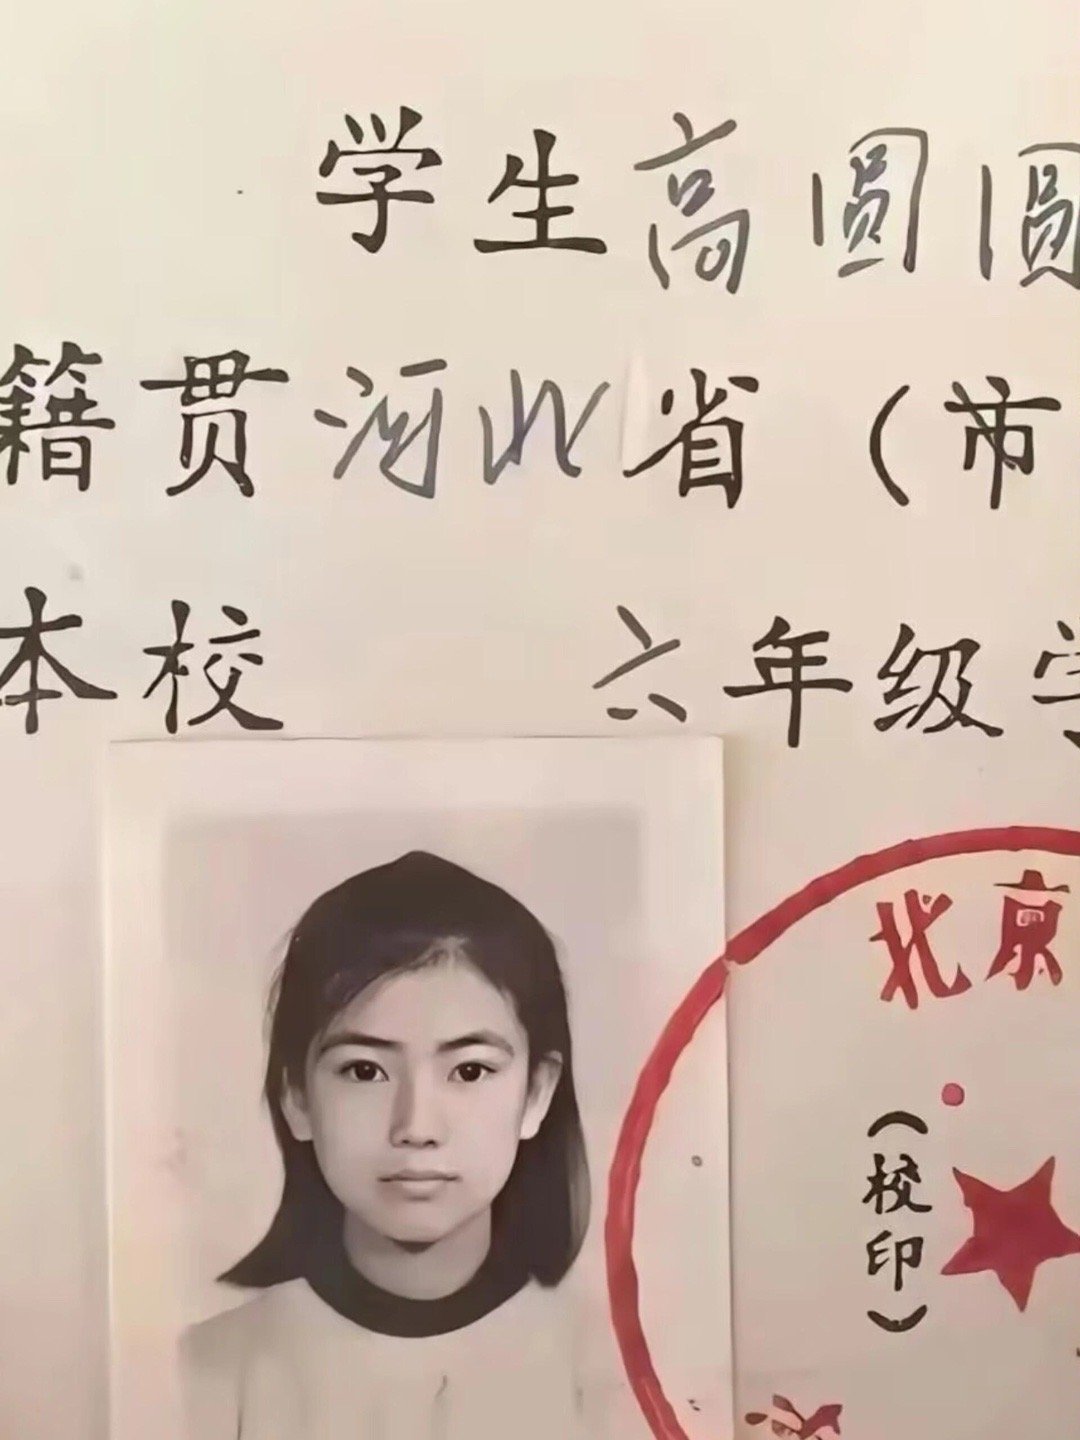 学生高圆圆
籍贯河北省（市
本校 六年级学
北京
（校印）